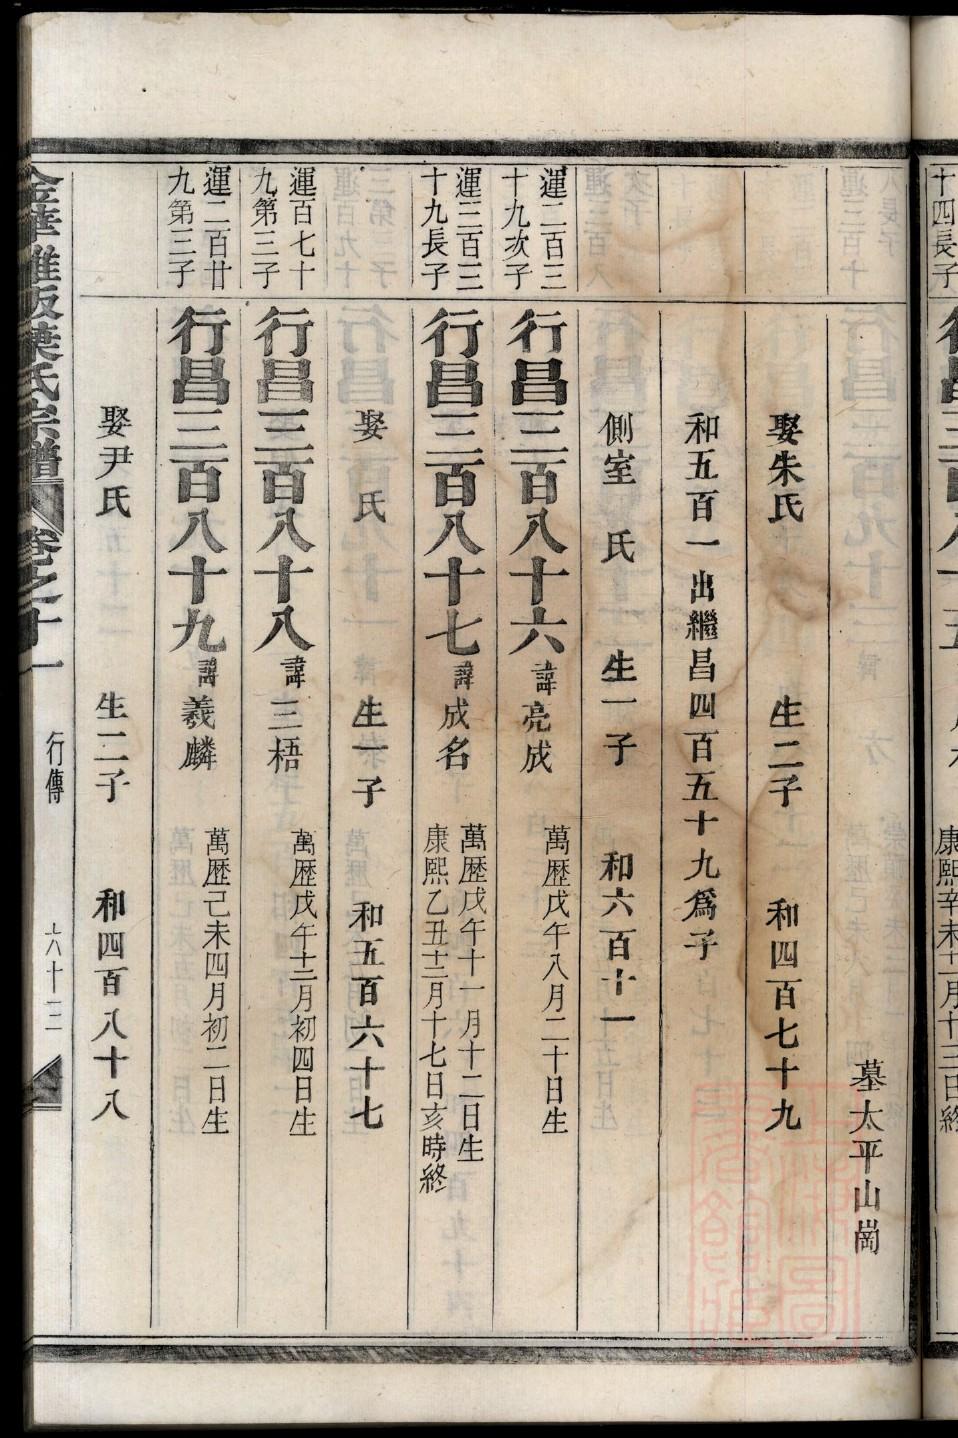 十四長子
康熙辛未十二月十三日終
墓太平山崗
娶朱氏 生二子 和四百七十九
和五百一出繼昌四百五十九爲子
側室 氏 生一子 和六百十一
運二百三十九次子
行昌三百八十六 諱亮成 萬歷戊午八月二十日生
運三百三十九長子
行昌三百八十七 諱成名 萬歷戊午十一月十二日生
康熙乙丑十二月十七日亥時終
娶 氏 生一子 和五百六十七
運百七十九第三子
行昌三百八十八 諱三梧 萬歷戊午十二月初四日生
運二百廿九第三子
行昌三百八十九 諱羲麟 萬歷己未四月初二日生
娶尹氏 生二子 和四百八十八
金華 葉氏宗譜 卷之十一 行傳 六十三